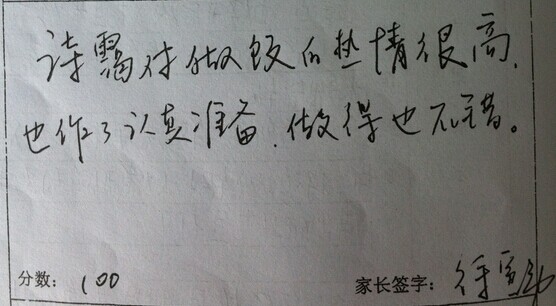 诗露对做饭的热情很高,
也作了认真准备,做得也不错。
分数: 100
家长签字: 徐